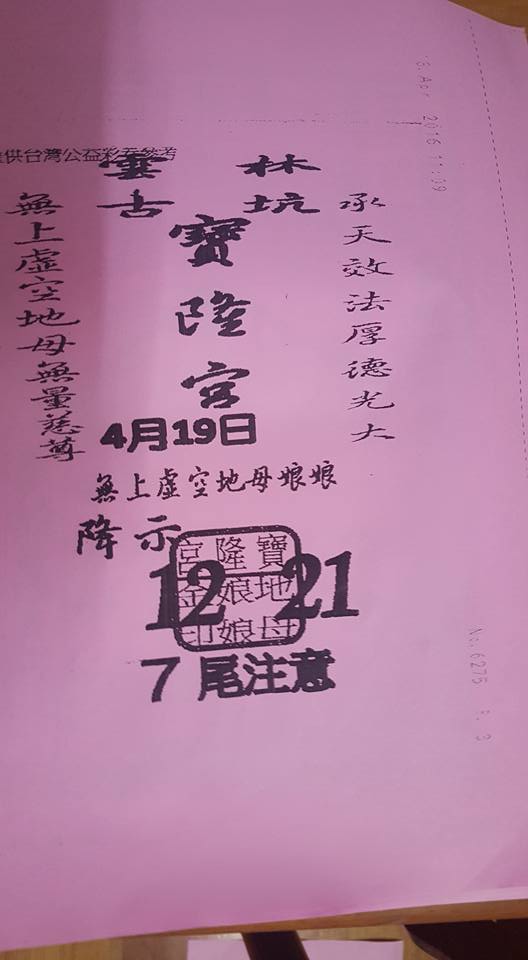 供台灣公益彩券參考
雲林
古坑
寶隆宮
承天效法厚德光大
無上虛空地母無量慈尊
4月19日
無上虛空地母娘娘
降示
12 21
寶隆宮
地母
娘娘
金印
7尾注意
Apr 2016
No.6275 P. 3